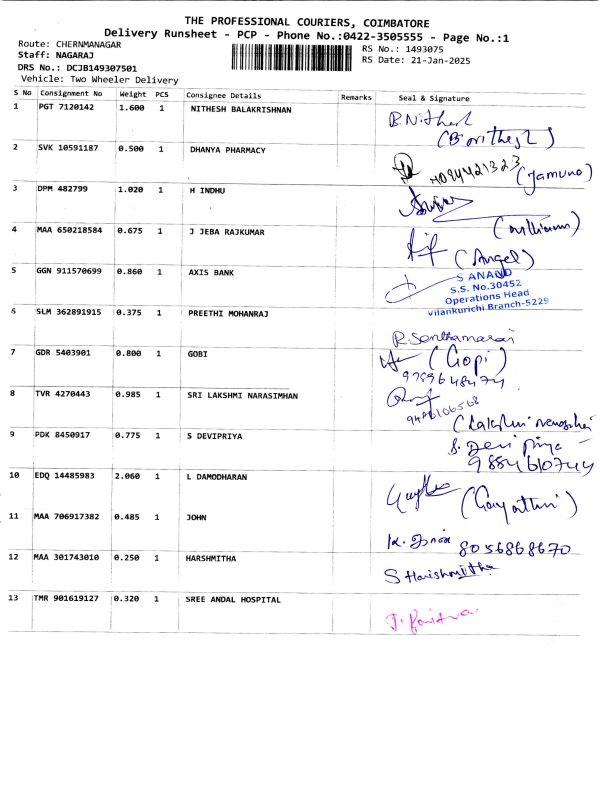 THE PROFESSIONAL COURIERS, COIMBATORE
Delivery Runsheet - PCP - Phone No.:0422-3505555 - Page No.:1
Route: CHERNMANAGAR RS No.: 1493075
Staff: NAGARAJ RS Date: 21-Jan-2025
DRS No.: DCJB149307501
Vehicle: Two Wheeler Delivery
S No Consignment No Weight PCS Consignee Details Remarks Seal & Signature
1 PGT 7120142 1.600 1 NITHESH BALAKRISHNAN
B.Nithesh
2 SVK 10591187 0.500 1 DHANYA PHARMACY
(Jamuna)
3 DPM 482799 1.020 1 H INDHU
4 MAA 650218584 0.675 1 J JEBA RAJKUMAR
(Angel)
5 GGN 911570699 0.860 1 AXIS BANK
S ANAND
S.S. No.30452
Operations Head
Vilankurichi Branch-5229
6 SLM 362891915 0.375 1 PREETHI MOHANRAJ
7 GDR 5403901 0.800 1 GOBI
(Gopi)
9789648474
8 TVR 4270443 0.985 1 SRI LAKSHMI NARASIMHAN
9 PDK 8450917 0.775 1 S DEVIPRIYA
S. Devi Priya
9884610744
10 EDQ 14485983 2.060 1 L DAMODHARAN
(Gayathri)
11 MAA 706917382 0.485 1 JOHN
8056868670
12 MAA 301743010 0.250 1 HARSHMITHA
S Harishmitha
13 TMR 901619127 0.320 1 SREE ANDAL HOSPITAL